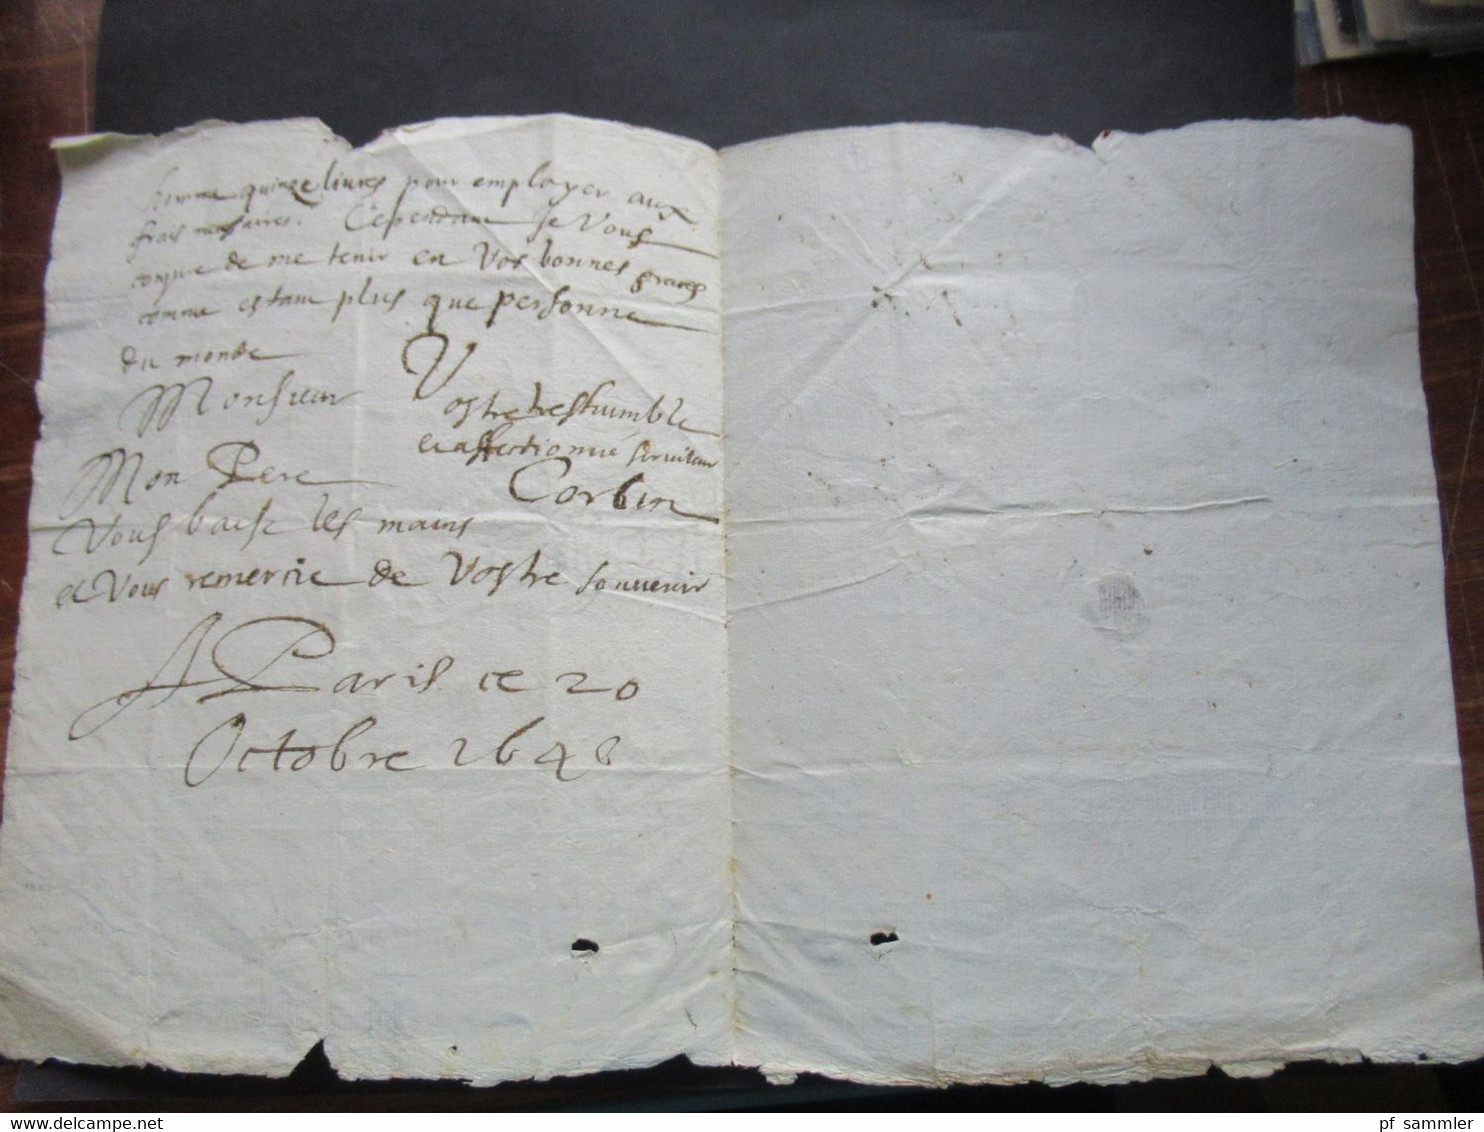 homme quinze livres pour employer aux
frais nessaires. Cependant je Vous
conjure de me tenir en Vos bonnes graces
comme estant plus que personne
du monde
Monsieur
Vostre treshumble
et affectionné serviteur
Corbin
Mon Pere
Vous baise les mains
et Vous remercie de Vostre souvenir
A Paris ce 20
Octobre 1648
www.delcampe.net
pf_sammler